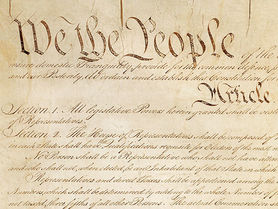 We the People of the
insure domestic Tranquility, provide for the common defence
and our Posterity, do ordain and establish this Constitution for
Article
Section. 1. All legislative Powers herein granted shall be vested
of Representatives.
Section. 2. The House of Representatives shall be composed of
in each State shall have the Qualifications requisite for Electors of the most
No Person shall be a Representative who shall not have
and who shall not, when elected, be an Inhabitant of that State in which
Representatives and direct Taxes shall be apportioned among the
Numbers, which shall be determined by adding to the whole Number
not taxed, three fifths of all other Persons. The actual Enumeration